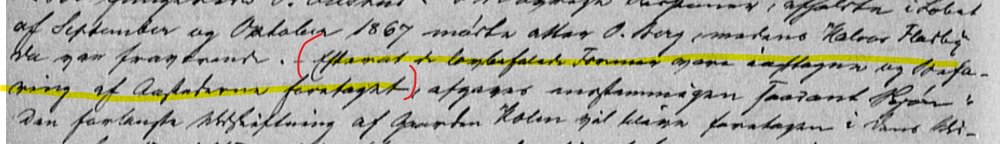 af September og Oktober 1867 mødte atter O. Berg, medens Halvor Flatby
da var fraværende. (Efterat de lovbefalede Former vare iagttagne og Befa-
ring af Aastederne foretaget) afgaves enstemmigen saadant Skjøn:
Den forlangte Udskiftning af Gaarden Holm vil blive foretagen i dens